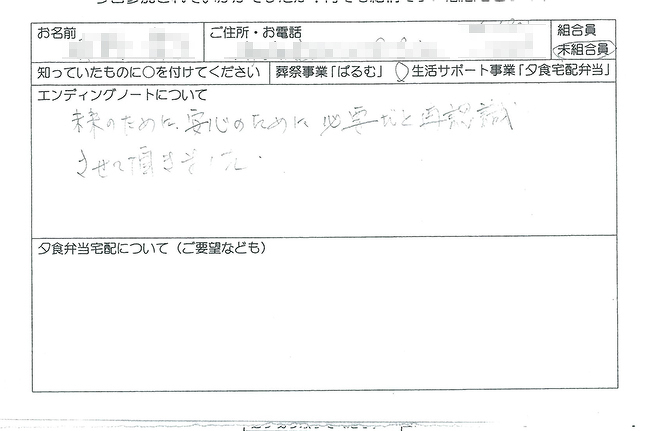 お名前
ご住所・お電話
組合員
未組合員
知っていたものに○を付けてください
葬祭事業「ぱるむ」
生活サポート事業「夕食宅配弁当」
エンディングノートについて
未来のために、安心のために必要だと再認識
させて頂きました.
夕食弁当宅配について（ご要望なども）